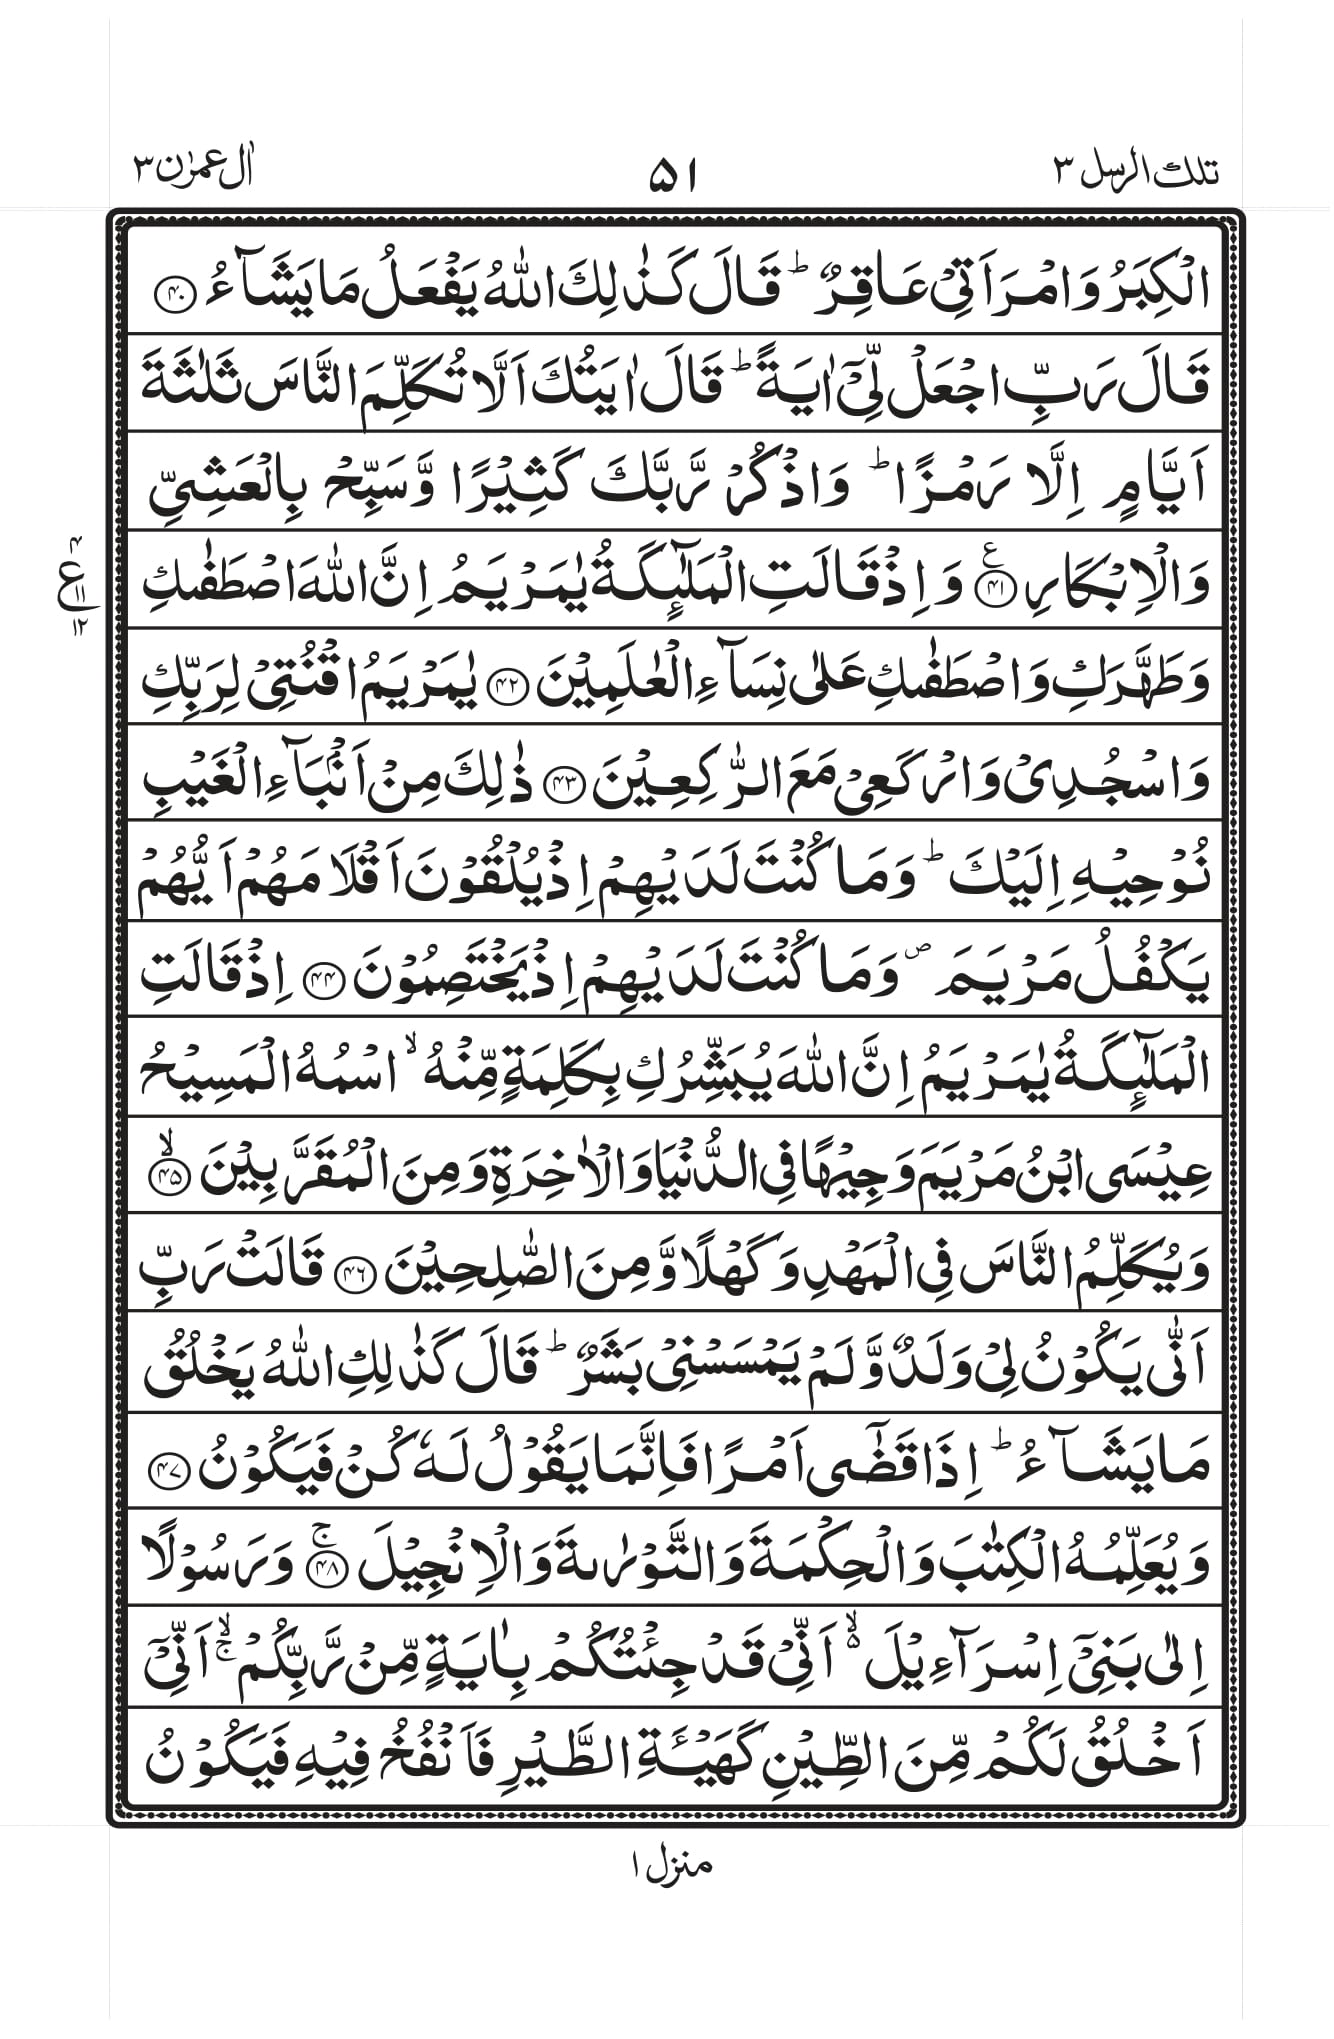 تلك الرسل ٣
٥١
اٰل عمرٰن ٣
الْكِبَرُ وَامْرَاَتِيْ عَاقِرٌ ؕ قَالَ كَذٰلِكَ اللّٰهُ يَفْعَلُ مَا يَشَآءُ ﴿۴۰﴾
قَالَ رَبِّ اجْعَلْ لِّيْٓ اٰيَةً ؕ قَالَ اٰيَتُكَ اَلَّا تُكَلِّمَ النَّاسَ ثَلٰثَةَ
اَيَّامٍ اِلَّا رَمْزًا ؕ وَاذْكُرْ رَّبَّكَ كَثِيْرًا وَّسَبِّحْ بِالْعَشِيِّ
وَالْاِبْكَارِ ﴿۴۱﴾ ع وَاِذْ قَالَتِ الْمَلٰٓئِكَةُ يٰمَرْيَمُ اِنَّ اللّٰهَ اصْطَفٰىكِ
۴
ع
۱۱
۱۲
وَطَهَّرَكِ وَاصْطَفٰىكِ عَلٰى نِسَآءِ الْعٰلَمِيْنَ ﴿۴۲﴾ يٰمَرْيَمُ اقْنُتِيْ لِرَبِّكِ
وَاسْجُدِيْ وَارْكَعِيْ مَعَ الرّٰكِعِيْنَ ﴿۴۳﴾ ذٰلِكَ مِنْ اَنْۢبَآءِ الْغَيْبِ
نُوْحِيْهِ اِلَيْكَ ؕ وَمَا كُنْتَ لَدَيْهِمْ اِذْ يُلْقُوْنَ اَقْلَامَهُمْ اَيُّهُمْ
يَكْفُلُ مَرْيَمَ ۪ وَمَا كُنْتَ لَدَيْهِمْ اِذْ يَخْتَصِمُوْنَ ﴿۴۴﴾ اِذْ قَالَتِ
الْمَلٰٓئِكَةُ يٰمَرْيَمُ اِنَّ اللّٰهَ يُبَشِّرُكِ بِكَلِمَةٍ مِّنْهُ ۙ اسْمُهُ الْمَسِيْحُ
عِيْسَى ابْنُ مَرْيَمَ وَجِيْهًا فِي الدُّنْيَا وَالْاٰخِرَةِ وَمِنَ الْمُقَرَّبِيْنَ ﴿۴۵﴾ ۙ
وَيُكَلِّمُ النَّاسَ فِي الْمَهْدِ وَكَهْلًا وَّمِنَ الصّٰلِحِيْنَ ﴿۴۶﴾ قَالَتْ رَبِّ
اَنّٰى يَكُوْنُ لِيْ وَلَدٌ وَّلَمْ يَمْسَسْنِيْ بَشَرٌ ؕ قَالَ كَذٰلِكِ اللّٰهُ يَخْلُقُ
مَا يَشَآءُ ؕ اِذَا قَضٰٓى اَمْرًا فَاِنَّمَا يَقُوْلُ لَهٗ كُنْ فَيَكُوْنُ ﴿۴۷﴾
وَيُعَلِّمُهُ الْكِتٰبَ وَالْحِكْمَةَ وَالتَّوْرٰىةَ وَالْاِنْجِيْلَ ﴿۴۸﴾ ۚ وَرَسُوْلًا
اِلٰى بَنِيْٓ اِسْرَآءِيْلَ ۙ۬ اَنِّيْ قَدْ جِئْتُكُمْ بِاٰيَةٍ مِّنْ رَّبِّكُمْ ۙۚ اَنِّيْٓ
اَخْلُقُ لَكُمْ مِّنَ الطِّيْنِ كَهَيْـَٔةِ الطَّيْرِ فَاَنْفُخُ فِيْهِ فَيَكُوْنُ
منزل ۱